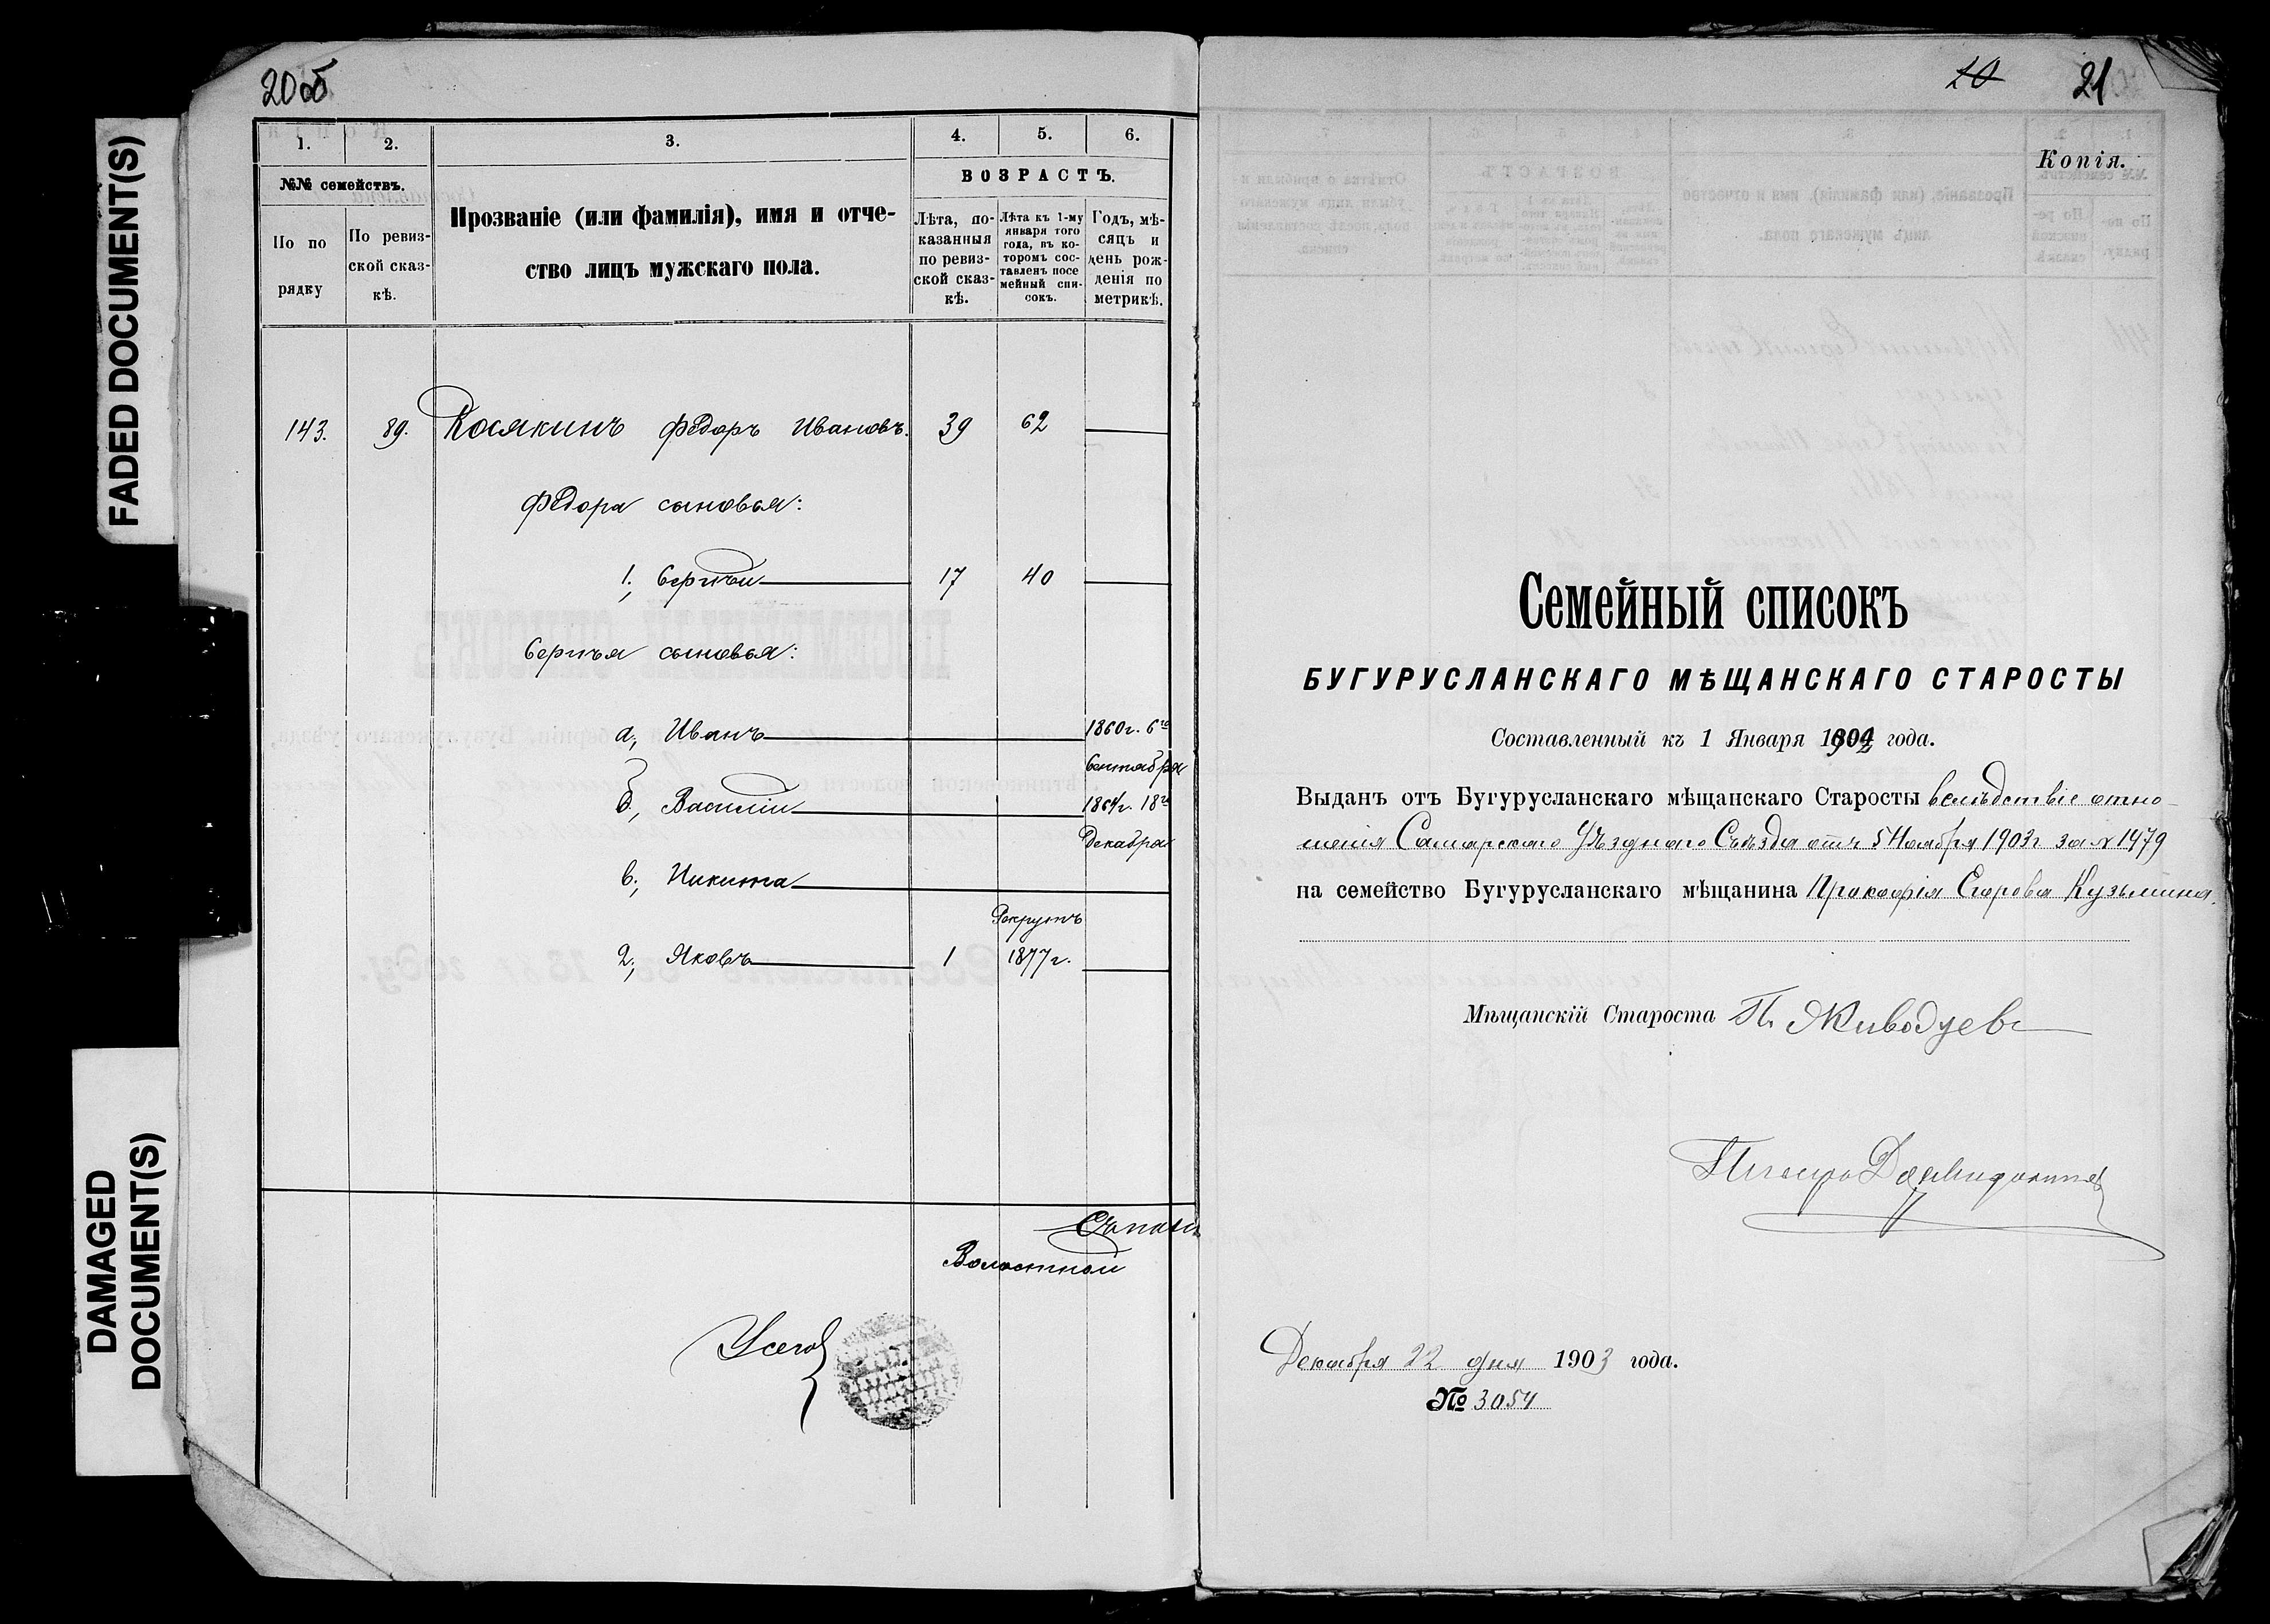 FADED DOCUMENT(S)
DAMAGED
DOCUMENT(S)
20об
1.
2.
3.
4.
5.
6.
№№ семействъ.
ВОЗРАСТЪ.
По по рядку
По ревизской сказкѣ.
Прозваніе (или фамилія), имя и отче-
ство лицъ мужскаго пола.
Лѣта, по-
казанныя
по ревиз-
ской сказ-
кѣ.
Лѣта къ 1-му
января того
года, въ ко-
торомъ сос-
тавленъ посе
мейный спи-
сокъ.
Годъ, мѣ-
сяцъ и
день рож-
денія по
метрикѣ.
143. 89. Косякинъ Федоръ Ивановъ. 39 62
Федора сыновья:
1, Сергѣй 17 40
Сергѣя сыновья:
а, Иванъ 1860г. 6го
Сентября
б, Василій 1864г. 18го
Декабря
в, Никита
Рекрутъ
2, Яковъ 1 1877г.
Волостной
10 21
Копія.
Семейный списокъ
БУГУРУСЛАНСКАГО МѢЩАНСКАГО СТАРОСТЫ
Составленный къ 1 Января 1904 года.
Выданъ отъ Бугурусланскаго мѣщанскаго Старосты вслѣдствіе отно-
шенія Самарскаго Уѣзднаго Съѣзда отъ 5 Ноября 1903г за № 1479
на семейство Бугурусланскаго мѣщанина Прокофія Егорова Кузьмина.
Мѣщанскій Староста П. Живодуевъ
Декабря 22 дня 1903 года.
№ 3054